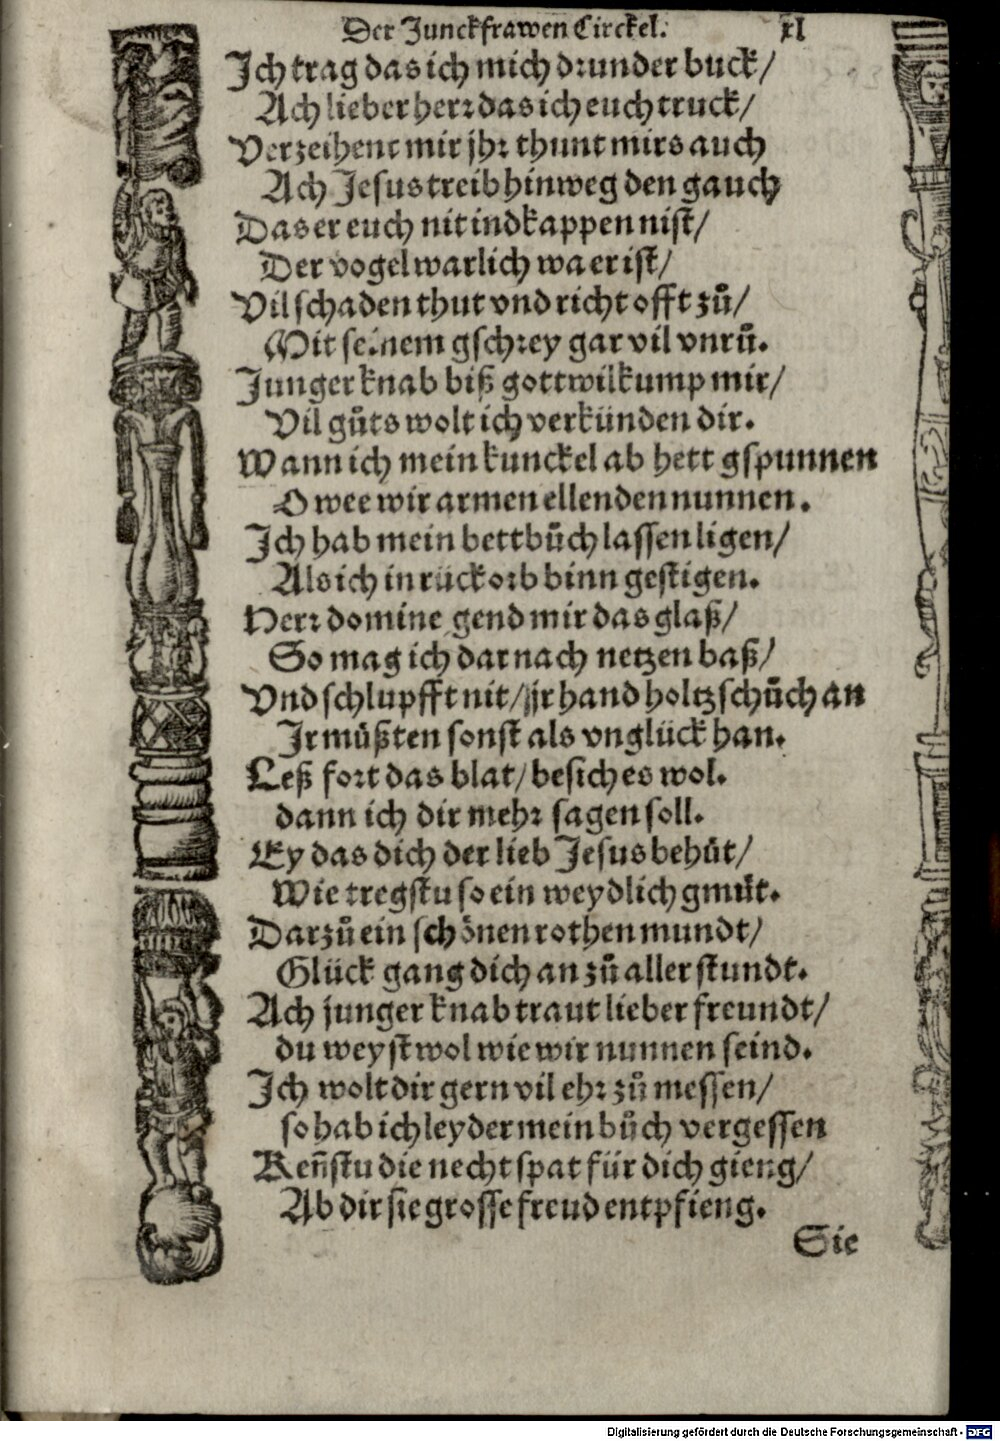 Der Junckfrawen Circkel. xl
Ich trag das ich mich drunder buck/
Ach lieber herr das ich euch truck/
Verzeihent mir jhr thunt mirs auch
Ach Jesus treib hinweg den gauch
Das er euch nit ind kappen nist/
Der vogel warlich wa er ist/
Vil schaden thut vnd richt offt zuͦ/
Mit seinem gschrey gar vil vnruͦ.
Junger knab biß gott wilkump mir/
Vil guͦts wolt ich verkünden dir.
Wann ich mein kunckel ab hett gspunnen
O wee wir armen ellenden nunnen.
Ich hab mein bettbuͦch lassen ligen/
Als ich in rückorb binn gestigen.
Herr domine gend mir das glaß/
So mag ich darnach netzen baß/
Vnd schlupfft nit/ jr hand holtzschuͦch an
Ir müßten sonst als vnglück han.
Leß fort das blat/ besich es wol.
dann ich dir mehr sagen soll.
Ey das dich der lieb Jesus behüt/
Wie tregstu so ein weydlich gmüt.
Darzuͦ ein schönen rothen mundt/
Glück gang dich an zuͦ aller stundt.
Ach junger knab traut lieber freundt/
du weyst wol wie wir nunnen seind.
Ich wolt dir gern vil ehr zuͦ messen/
so hab ich leyder mein buͦch vergessen
Keñstu die necht spat für dich gieng/
Ab dir sie grosse freud entpfieng.
Sie
Digitalisierung gefördert durch die Deutsche Forschungsgemeinschaft - DFG